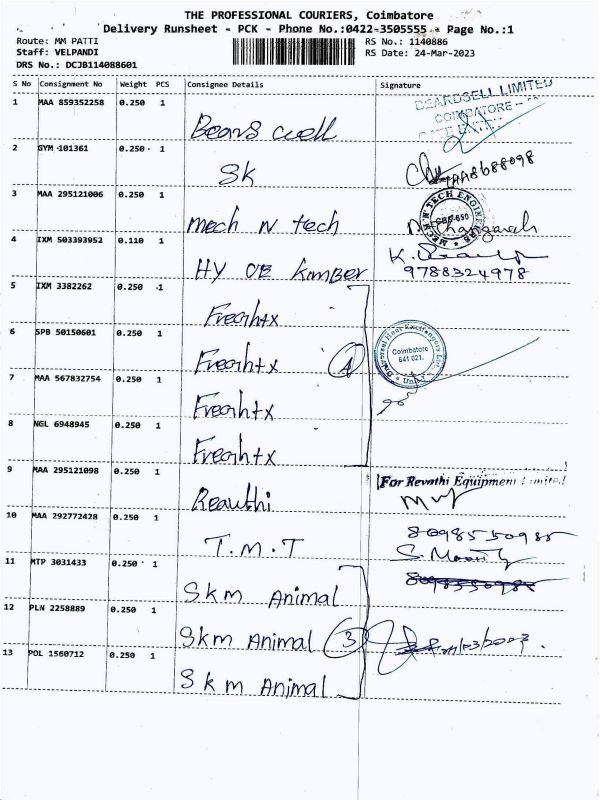 THE PROFESSIONAL COURIERS, Coimbatore
Delivery Runsheet - PCK - Phone No.:0422-3505555 - Page No.:1
Route: MM PATTI
RS No.: 1140886
Staff: VELPANDI
RS Date: 24-Mar-2023
DRS No.: DCJB114088601
S No Consignment No Weight PCS Consignee Details Signature
1 MAA 859352258 0.250 1 Bears well
BEARDSELL LIMITED
COIMBATORE
2 GYM 101361 0.250 1 SK
3 MAA 295121006 0.250 1 mech N tech
MECH 'N' TECH ENGINEERS
CBE-650
4 IXM 503393952 0.110 1 HY OE kimber
9788324978
5 IXM 3382262 0.250 1 Freahtx
6 SPB 50150601 0.250 1 Freahtx
4
Coimbatore
641 021.
7 MAA 567832754 0.250 1 Freahtx
8 NGL 6948945 0.250 1 Freahtx
9 MAA 295121098 0.250 1 Reauthi
For Revathi Equipment Limited
10 MAA 292772428 0.250 1 T.M.T
8098550985
11 MTP 3031433 0.250 1 Skm Animal
12 PLN 2258889 0.250 1 Skm Animal
3
13 POL 1560712 0.250 1 Skm Animal